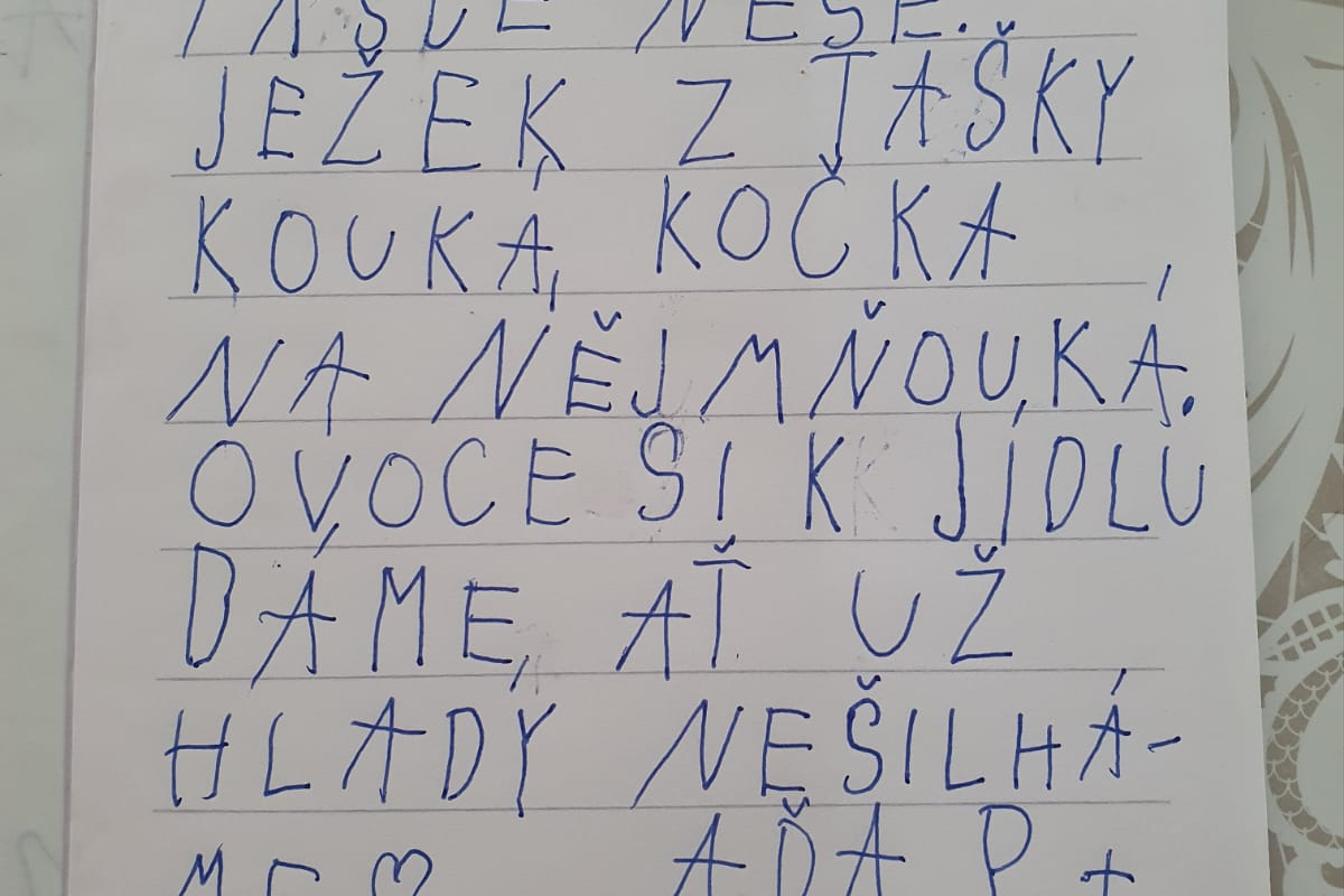 TAŠCE NESE.
JEŽEK Z TAŠKY
KOUKÁ, KOČKA
NA NĚJ MŇOUKÁ.
OVOCE SI K JÍDLU
DÁME, AŤ UŽ
HLADY NEŠILHÁ-
ME ♡ AĎA P +